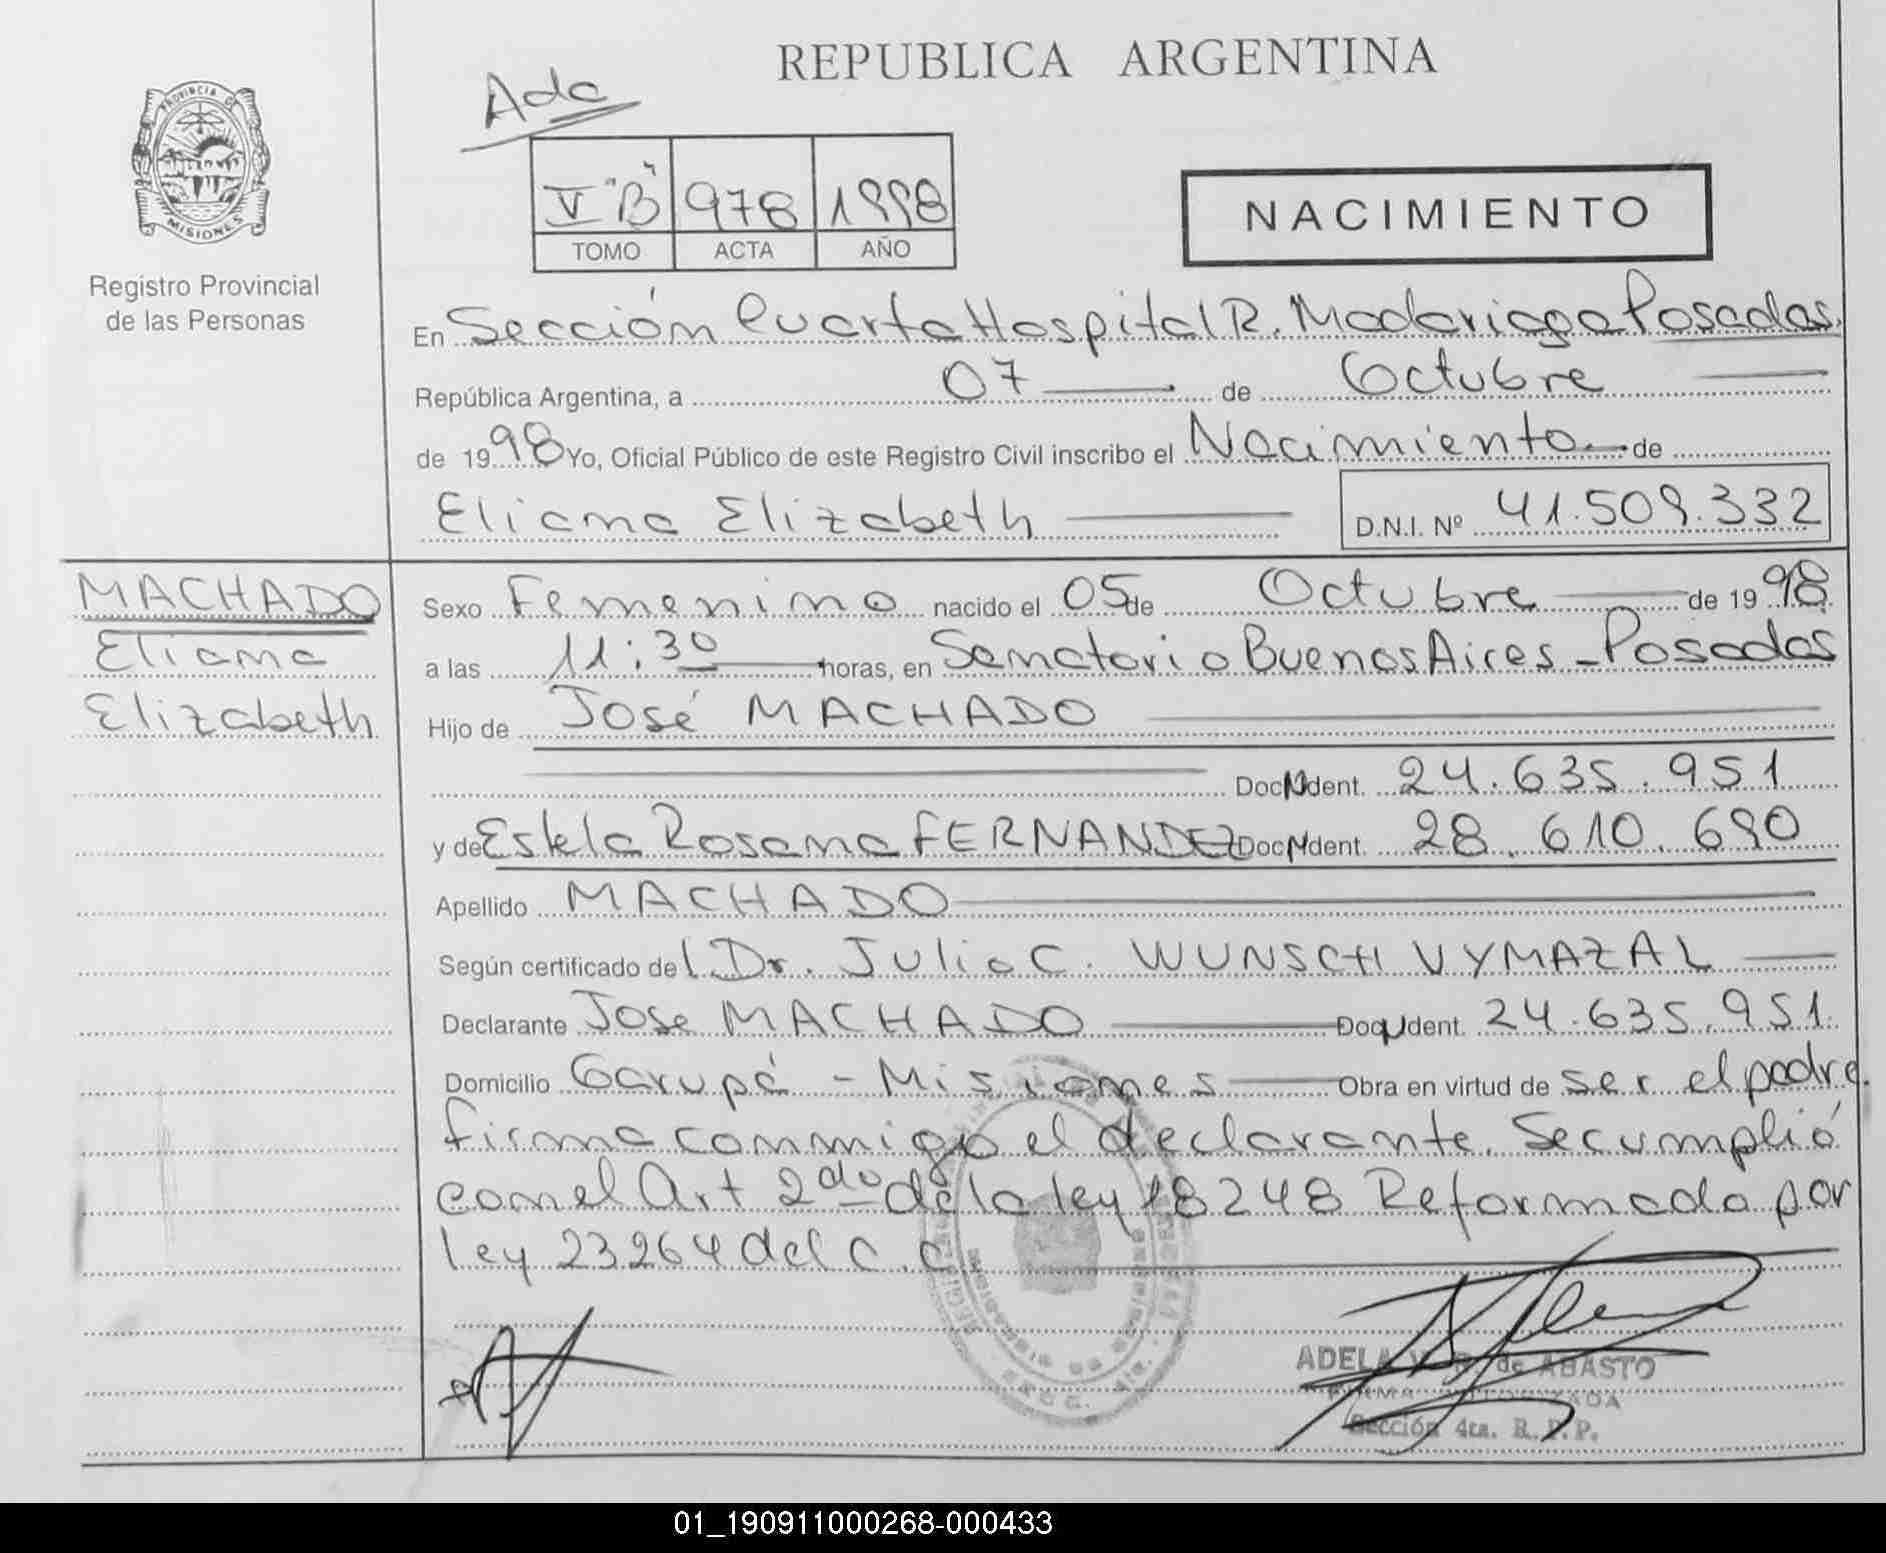 REPUBLICA ARGENTINA
Ada
PROVINCIA DE
MISIONES
Registro Provincial
de las Personas
V "B" 978 1998
TOMO ACTA AÑO
NACIMIENTO
En Sección Cuarta Hospital R. Madariaga Posadas.
República Argentina, a 07 de Octubre
de 1998 Yo, Oficial Público de este Registro Civil inscribo el Nacimiento de
Eliana Elizabeth D.N.I. Nº 41.509.332
MACHADO
Eliana
Elizabeth
Sexo Femenino nacido el 05 de Octubre de 1998
a las 11:30 horas, en Sanatorio Buenos Aires - Posadas
Hijo de José MACHADO
Doc N Ident. 24.635.951
y de Estela Rosana FERNANDEZ Doc N Ident. 28.610.690
Apellido MACHADO
Según certificado del Dr. Julio C. WUNSCH VYMAZAL
Declarante Jose MACHADO Doc N Ident. 24.635.951
Domicilio Garupá - Misiones Obra en virtud de ser el padre.
firma conmigo el declarante. Se cumplió
con el Art 2do de la ley 18248 Reformada por
ley 23264 del C.C.
ADELA V. de ABASTO
FIRMA AUTORIZADA
Sección 4ta. R.P.P.
01_190911000268-000433